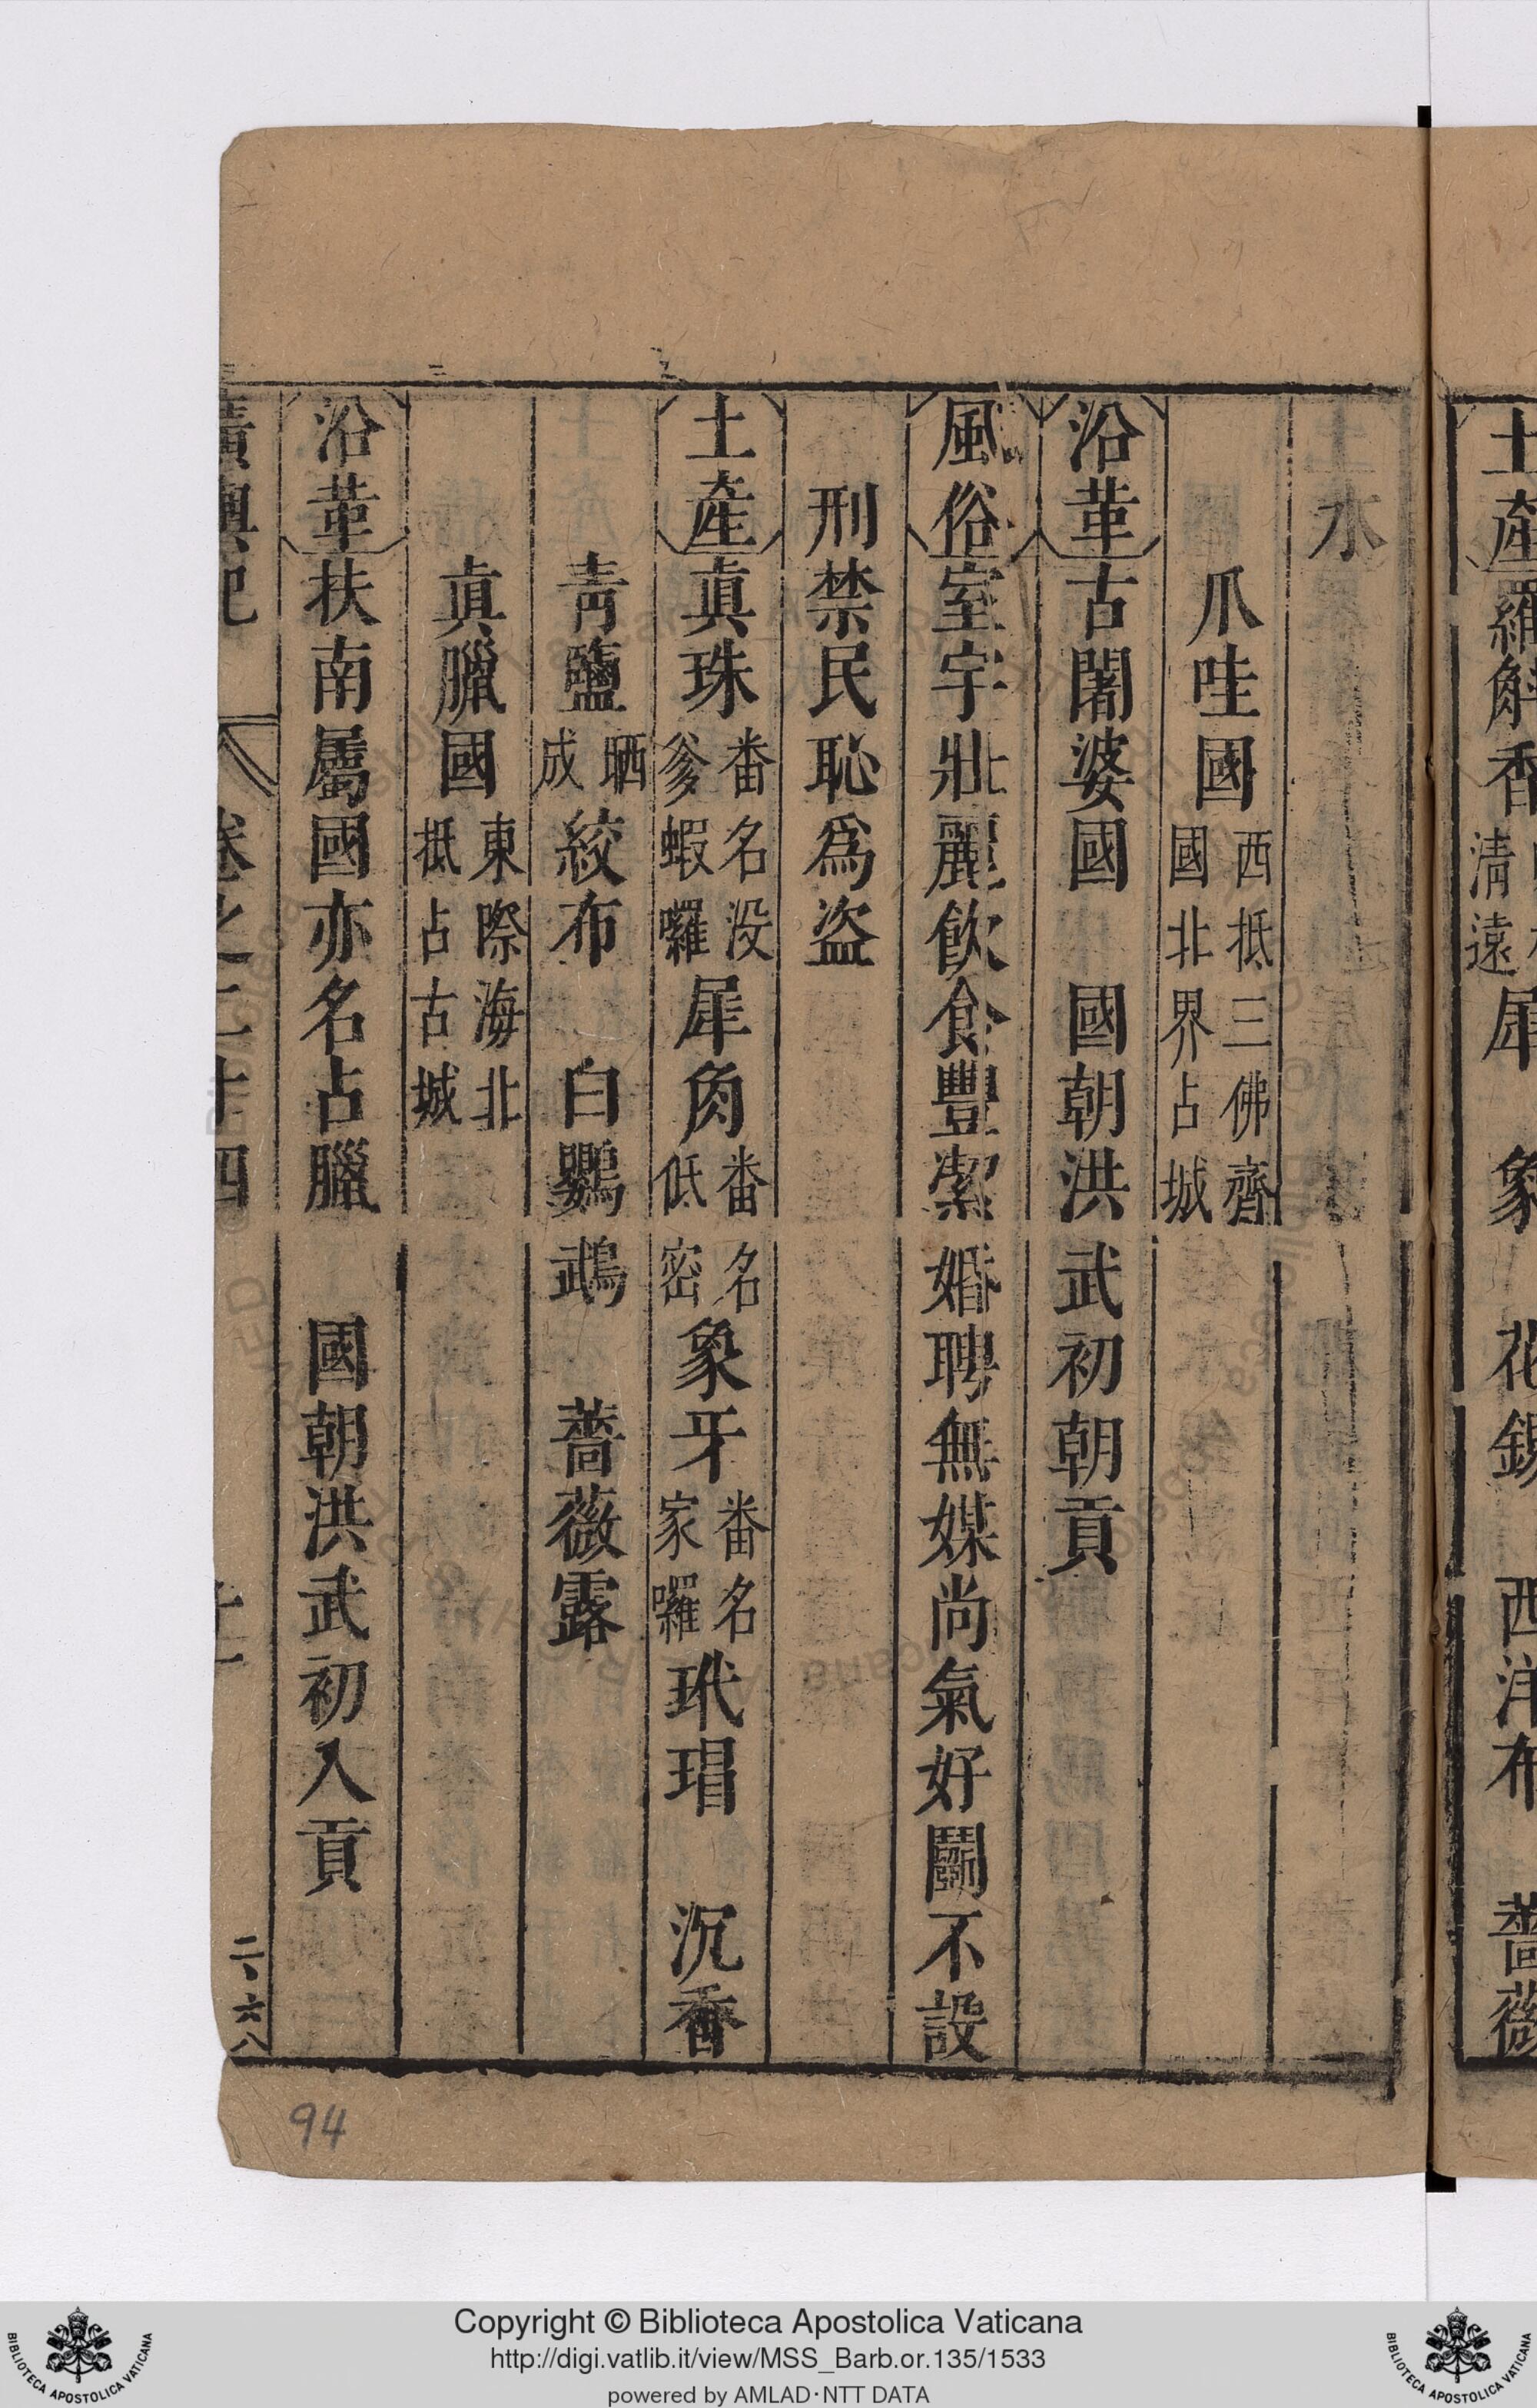 水
爪哇國西抵三佛齊國北界占城
沿革古闍婆國 國朝洪武初朝貢
風俗室宇壯麗飲食豐潔婚聘無媒尚氣好鬬不設
刑禁民恥爲盜
土產眞珠番名没爹蝦囉犀角番名低密象牙番名家囉玳瑁 沉香
青鹽晒成絞布 白鸚鵡 薔薇露
眞臘國東際海北抵占古城
沿革扶南屬國亦名占臘 國朝洪武初入貢
廣輿記 卷之二十四
二、六八
94
Copyright © Biblioteca Apostolica Vaticana
http://digi.vatlib.it/view/MSS_Barb.or.135/1533
powered by AMLAD·NTT DATA
BIBLIOTECA APOSTOLICA VATICANA
BIBLIOTECA APOSTOLICA VATICANA